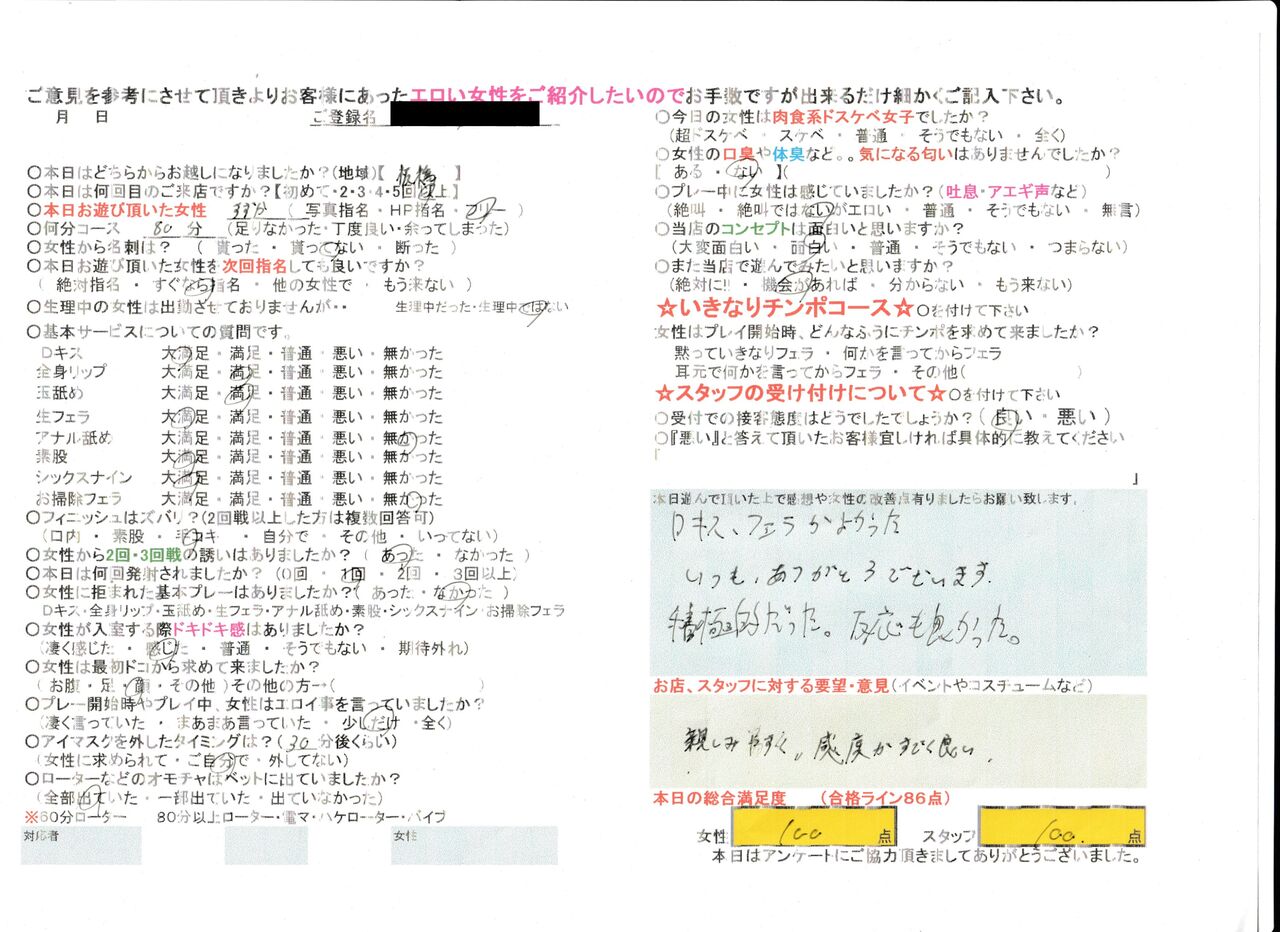 ご意見を参考にさせて頂きよりお客様にあったエロい女性をご紹介したいのでお手数ですが出来るだけ細かくご記入下さい。
月 日 ご登録名
○本日はどちらからお越しになりましたか?(地域)【 板橋 】
○本日は何回目のご来店ですか?【初めて・2・3・4・5回以上】
○本日お遊び頂いた女性 (写真指名・HP指名・フリー)
○何分コース 80 分 (足りなかった・丁度良い・余ってしまった)
○女性から名刺は? (貰った・貰ってない・断った)
○本日お遊び頂いた女性を次回指名しても良いですか?
(絶対指名・すぐなら指名・他の女性で・もう来ない)
○生理中の女性は出勤させておりませんが・・ 生理中だった・生理中ではない
○基本サービスについての質問です。
Dキス 大満足・満足・普通・悪い・無かった
全身リップ 大満足・満足・普通・悪い・無かった
玉舐め 大満足・満足・普通・悪い・無かった
生フェラ 大満足・満足・普通・悪い・無かった
アナル舐め 大満足・満足・普通・悪い・無かった
素股 大満足・満足・普通・悪い・無かった
シックスナイン 大満足・満足・普通・悪い・無かった
お掃除フェラ 大満足・満足・普通・悪い・無かった
○フィニッシュはズバリ?(2回戦以上した方は複数回答可)
(口内・素股・手コキ・自分で・その他・いってない)
○女性から2回・3回戦の誘いはありましたか? (あった・なかった)
○本日は何回発射されましたか? (0回・1回・2回・3回以上)
○女性に拒まれた基本プレーはありましたか?(あった・なかった)
Dキス・全身リップ・玉舐め・生フェラ・アナル舐め・素股・シックスナイン・お掃除フェラ
○女性が入室する際ドキドキ感はありましたか?
(凄く感じた・感じた・普通・そうでもない・期待外れ)
○女性は最初ドコから求めて来ましたか?
(お腹・足・顔・その他)その他の方→( )
○プレー開始時やプレイ中、女性はエロイ事を言っていましたか?
(凄く言っていた・まあまあ言っていた・少しだけ・全く)
○アイマスクを外したタイミングは?(30 分後くらい)
(女性に求められて・ご自分で・外してない)
○ローターなどのオモチャはベットに出ていましたか?
(全部出ていた・一部出ていた・出ていなかった)
※60分ローター 80分以上ローター・電マ・ハケローター・バイブ
対応者 女性
○今日の女性は肉食系ドスケベ女子でしたか?
(超ドスケベ・スケベ・普通・そうでもない・全く)
○女性の口臭や体臭など。。気になる匂いはありませんでしたか?
[ ある・ない ](
○プレー中に女性は感じていましたか?(吐息・アエギ声など)
(絶叫・絶叫ではないがエロい・普通・そうでもない・無言)
○当店のコンセプトは面白いと思いますか?
(大変面白い・面白い・普通・そうでもない・つまらない)
○また当店で遊んでみたいと思いますか?
(絶対に!!・機会があれば・分からない・もう来ない)
☆いきなりチンポコース☆○を付けて下さい
女性はプレイ開始時、どんなふうにチンポを求めて来ましたか?
黙っていきなりフェラ・何かを言ってからフェラ
耳元で何かを言ってからフェラ・その他( )
☆スタッフの受け付けについて☆○を付けて下さい
○受付での接客態度はどうでしたでしょうか?(良い・悪い)
○『悪い』と答えて頂いたお客様宜しければ具体的に教えてください
「
」
本日遊んで頂いた上で感想や女性の改善点有りましたらお願い致します。
Dキス、フェラがよかった
いつも、ありがとうございます。
積極的だった。反応も良かった。
お店、スタッフに対する要望・意見(イベントやコスチュームなど)
親しみやすく、感度がすごく良い.
本日の総合満足度 (合格ライン86点)
女性 100 点 スタッフ 100. 点
本日はアンケートにご協力頂きましてありがとうございました。